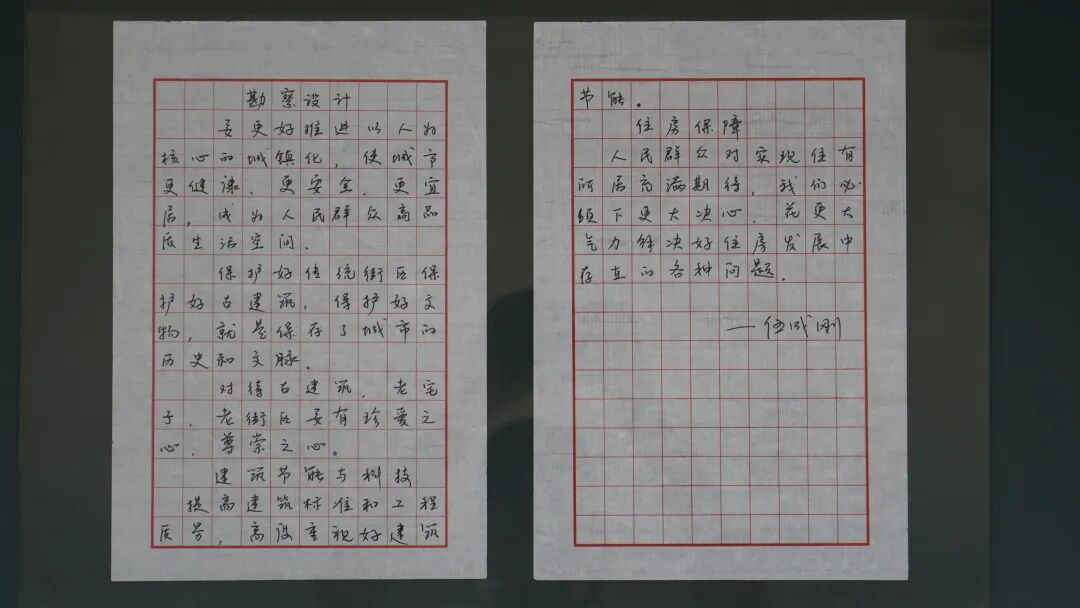 勘察设计
要更好推进以人为
核心的城镇化，使城市
更健康、更安全、更宜
居，成为人民群众高品
质生活空间.
保护好传统街区保
护好古建筑，保护好文
物，就是保存了城市的
历史和文脉.
对待古建筑，老宅
子，老街区要有珍爱之
心，尊崇之心。
建筑节能与科技
提高建筑标准和工程
质量，高度重视好建筑
节能.
住房保障
人民群众对实现住有
所居充满期待，我们必
须下更大决心，花更大
气力解决好住房发展中
存在的各种问题.
—伍成刚